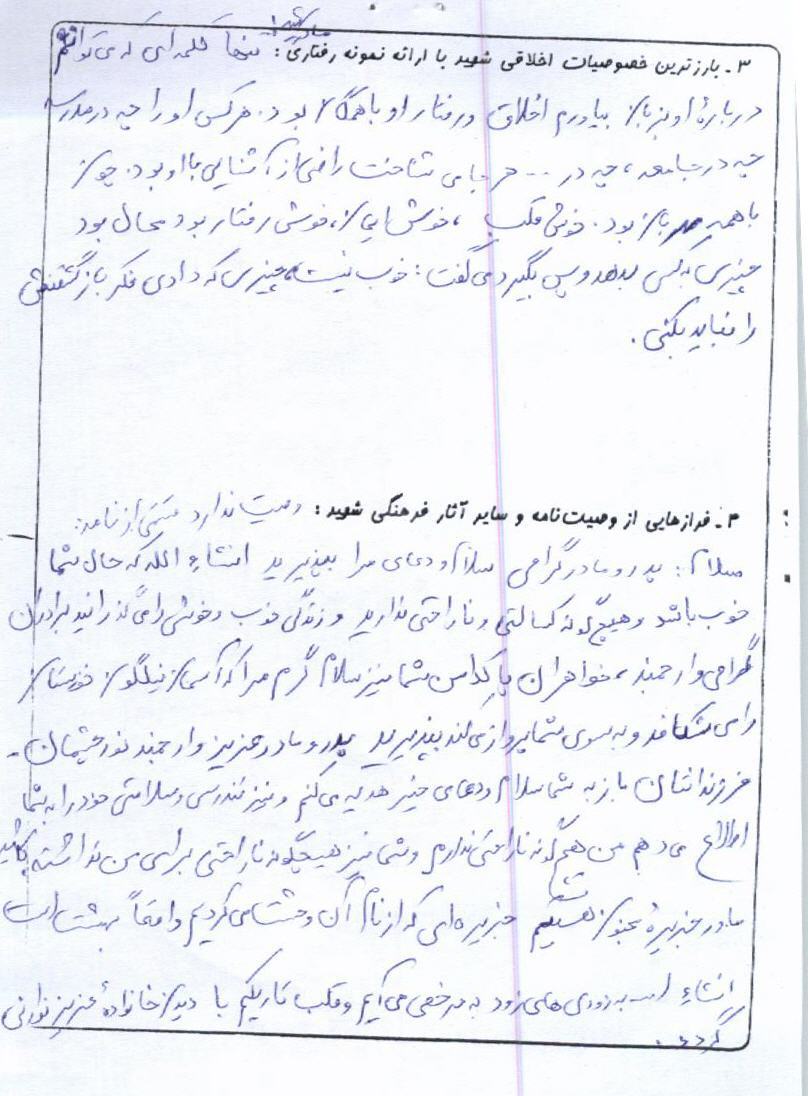 مادر شهید:
۳ـ بارزترین خصوصیات اخلاقی شهید با ارائه نمونه رفتاری: تنها کلمه‌ای که می‌توانم
درباره او بر زبان بیاورم اخلاق و رفتار او با همگان بود. هرکس او را چه در مدرسه
چه در جامعه، چه در ... هر جا می‌شناخت راضی از آشنایی با او بود. چون
با همه مهربان بود. خوش قلب، خوش ایمان، خوش رفتار بود محال بود
چیزی به کسی بدهد و پس بگیرد می‌گفت: خوب نیست چیزی که دادی فکر بازگشتنش
را نباید بکنی.
۴ـ فرازهایی از وصیت‌نامه و سایر آثار فرهنگی شهید: وصیت ندارد متنی از نامه:
سلام: پدر و مادر گرامی سلام و دعای مرا بپذیرید انشاء الله که حال شما
خوب باشد و هیچ‌گونه کسالتی و ناراحتی ندارید و زندگی خوب و خوشی را می‌گذرانید برادران
گرامی و ارجمند، خواهران پاکدامن شما نیز سلام گرم مرا که آسمان نیلگون خوزستان
را می‌شکافد و به سوی شما پرواز می‌کند بپذیرید پدر و مادر عزیز و ارجمند نور چشمان
فرزندانتان باز به شما سلام و دعای خیر هدیه می‌کنم و نیز تندرستی و سلامتی خود را به شما
اطلاع می‌دهم من هیچ‌گونه ناراحتی ندارم و شما نیز هیچگونه ناراحتی برای من نداشته باشید
ما در جزیره مجنون هستیم جزیره‌ای که از نام آن وحشت می‌کردیم واقعاً بهشت است
انشاء الله به زودی های زود به مرخصی می‌آیم و قلب تاریکم با دیدن خانواده عزیز نورانی
گردد.